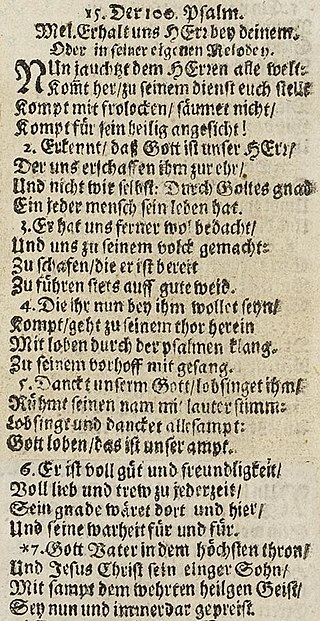 15. Der 100. Psalm.
Mel. Erhalt uns HErr bey deinem.
Oder in seiner eigenen Melodey.
NUn jauchtzt dem HErren alle welt
Kom̄t her/ zu seinem dienst euch stellt
Kompt mit frolocken/ säumet nicht/
Kompt für sein heilig angesicht!
2. Erkennt/ daß Gott ist unser HErr/
Der uns erschaffen ihm zur ehr/
Und nicht wir selbst: Durch Gottes gnad
Ein jeder mensch sein leben hat.
3. Er hat uns ferner wol bedacht/
Und uns zu seinem volck gemacht:
Zu schafen/ die er ist bereit
Zu führen stets auff gute weid.
4. Die ihr nun bey ihm wollet seyn/
Kompt/ geht zu seinem thor herein
Mit loben durch der psalmen klang.
Zu seinem vorhoff mit gesang.
5. Danckt unserm Gott/ lobsinget ihm/
Rühmt seinen nam mi lauter stimm:
Lobsingt und dancket allesampt:
Gott loben/ das ist unser ampt.
6. Er ist voll güt und freundligkeit/
Voll lieb und trew zu jederzeit/
Sein gnade wäret dort und hier/
Und seine warheit für und für.
*7. Gott Vater in dem höchsten thron/
Und Jesus Christ sein einger Sohn/
Mit sampt dem wehrten heilgen Geist/
Sey nun und immerdar gepreist.